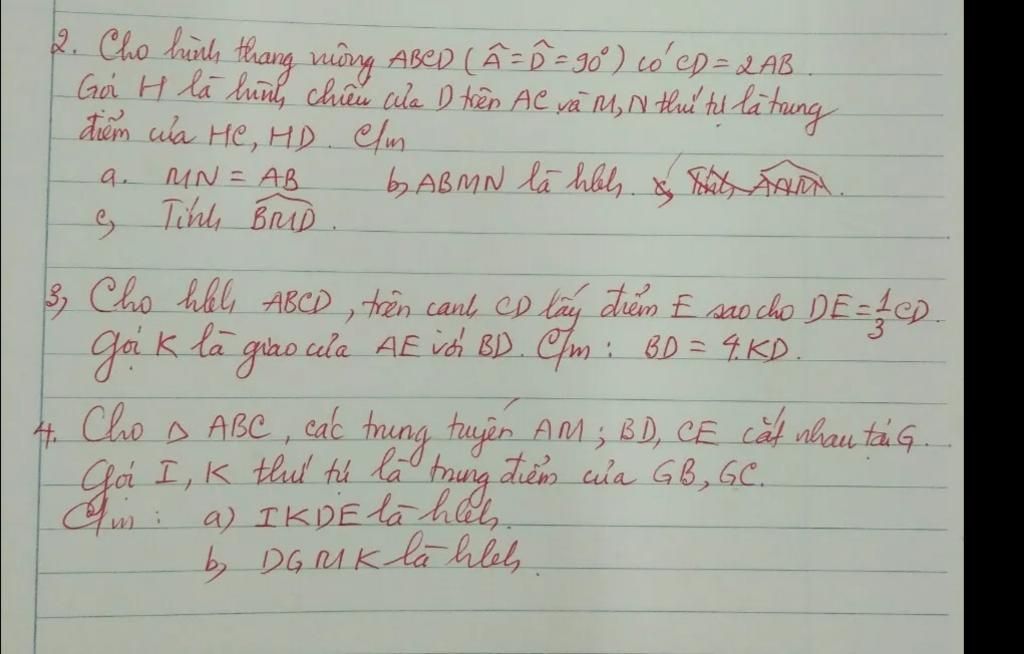 2. Cho hình thang vuông ABCD (Â = D̂ = 90°) có CD = 2AB.
Gọi H là hình chiếu của D trên AC và M, N thứ tự là trung
điểm của HC, HD. C/m
a. MN = AB b, ABMN là hbh.
c, Tính BMD.
3, Cho hbh ABCD, trên cạnh CD lấy điểm E sao cho DE = 1/3 CD.
Gọi K là giao của AE với BD. C/m : BD = 4.KD.
4. Cho Δ ABC, các trung tuyến AM ; BD, CE cắt nhau tại G.
Gọi I, K thứ tự là trung điểm của GB, GC.
C/m : a) IKDE là hbh.
b, DGMK là hbh.